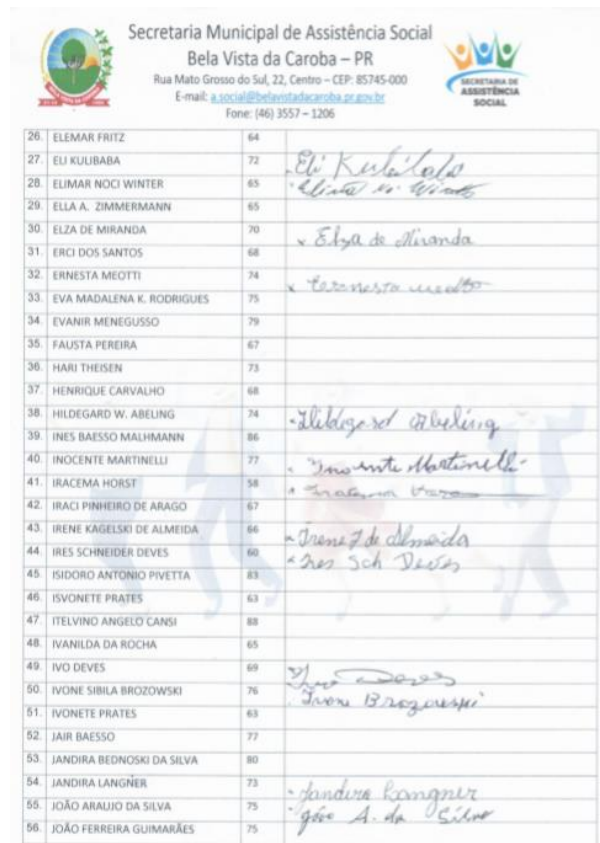 Secretaria Municipal de Assistência Social
Bela Vista da Caroba – PR
Rua Mato Grosso do Sul, 22, Centro – CEP: 85745-000
E-mail: a.social@belavistadacaroba.pr.gov.br
Fone: (46) 3557 – 1206
SECRETARIA DE
ASSISTÊNCIA
SOCIAL
26. ELEMAR FRITZ 64
27. ELI KULIBABA 72 Eli
28. ELIMAR NOCI WINTER 65
29. ELLA A. ZIMMERMANN 65
30. ELZA DE MIRANDA 70 x Elza de Miranda
31. ERCI DOS SANTOS 68
32. ERNESTA MEOTTI 74 x
33. EVA MADALENA K. RODRIGUES 75
34. EVANIR MENEGUSSO 79
35. FAUSTA PEREIRA 67
36. HARI THEISEN 73
37. HENRIQUE CARVALHO 68
38. HILDEGARD W. ABELING 74 Abeling
39. INES BAESSO MALHMANN 86
40. INOCENTE MARTINELLI 77 Martinelli
41. IRACEMA HORST 58
42. IRACI PINHEIRO DE ARAGO 67
43. IRENE KAGELSKI DE ALMEIDA 66 Irene de Almeida
44. IRES SCHNEIDER DEVES 60 Ires Sch Deves
45. ISIDORO ANTONIO PIVETTA 83
46. ISVONETE PRATES 63
47. ITELVINO ANGELO CANSI 88
48. IVANILDA DA ROCHA 65
49. IVO DEVES 69 Ivo Deves
50. IVONE SIBILA BROZOWSKI 76 Ivone Brozowski
51. IVONETE PRATES 63
52. JAIR BAESSO 77
53. JANDIRA BEDNOSKI DA SILVA 80
54. JANDIRA LANGNER 73 Jandira Langner
55. JOÃO ARAUJO DA SILVA 75 João A. da Silva
56. JOÃO FERREIRA GUIMARÃES 75